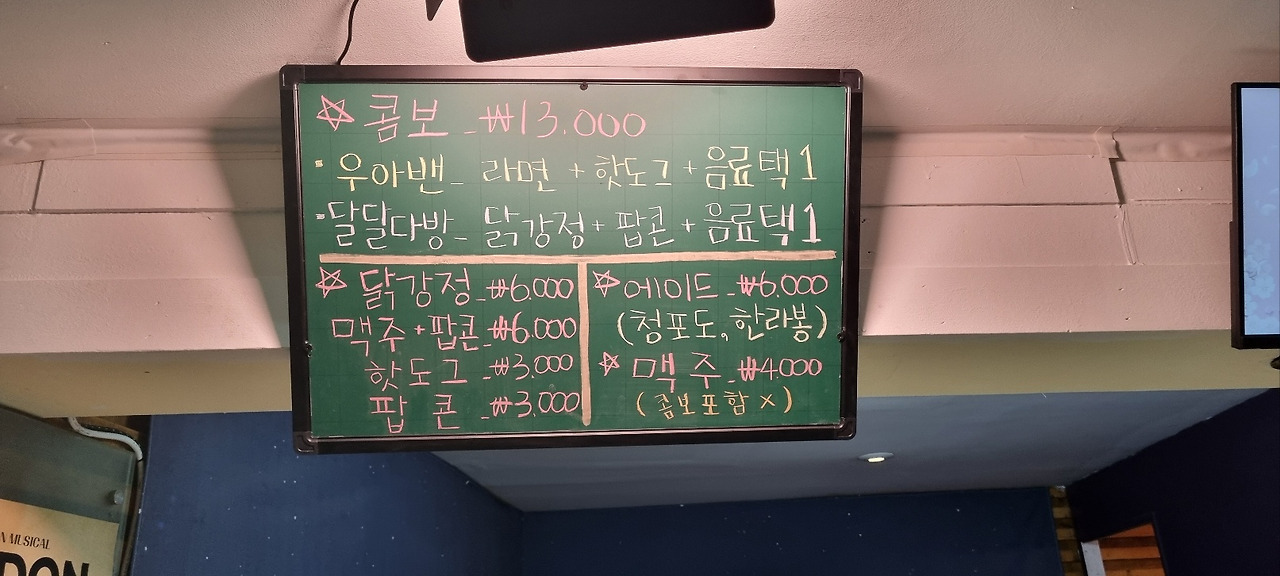 ☆ 콤보 - ₩13.000
· 우아밴 - 라면 + 핫도그 + 음료택1
· 달달다방 - 닭강정 + 팝콘 + 음료택1
☆ 닭강정 - ₩6.000
맥주+팝콘 - ₩6.000
핫도그 - ₩3.000
팝콘 - ₩3.000
☆ 에이드 - ₩6.000
(청포도, 한라봉)
☆ 맥주 - ₩4.000
(콤보포함 x)
N MUSICAL
DON